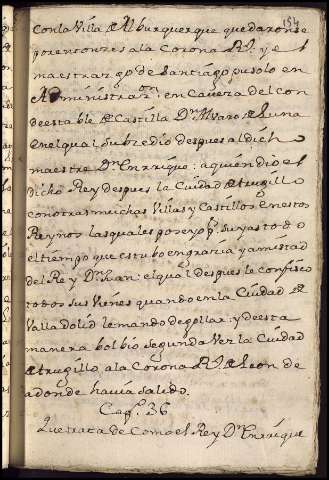 154
con la Villa de Alburquerque quedaronse
por entonzes a la Corona Rl. y el
maestrazgo de Santiago pusolo en
Administraz.on en Cavera del con
deestable de Castilla Dn. Alvaro de Luna
en el qual subzedio despues al dicho
maestre Dn. Enrrique: a quien dio el
dicho Rey despues la Ciudad de trugillo
con otras muchas Villas y Castillos en estos
Reynos las quales poseyo pr. suyas todo
el tiempo que estubo en grazia y amistad
del Rey Dn. Juan: el qual despues le confisco
todos sus Vienes quando en la Ciudad de
Valladolid le mando degollar: y de esta
manera bolbio segunda vez la Ciudad
de trugillo, a la Corona Rl. de Leon de
adonde havia salido.
Capl. 36
Que trata de Como el Rey Dn. Enrrique